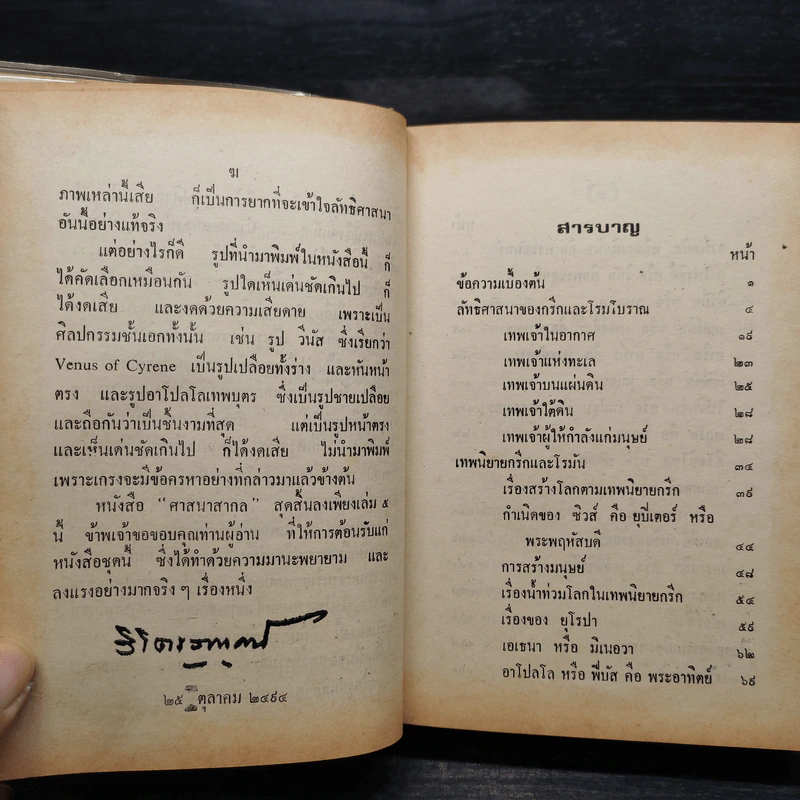 ฆ
ภาพเหล่านี้เสีย ก็เป็นการยากที่จะเข้าใจลัทธิศาสนา
อันนี้อย่างแท้จริง
แต่อย่างไรก็ดี รูปที่นำมาพิมพ์ในหนังสือนี้ ก็
ได้คัดเลือกเหมือนกัน รูปใดเห็นเด่นชัดเกินไป ก็
ได้งดเสีย และงดด้วยความเสียดาย เพราะเป็น
ศิลปกรรมชั้นเอกทั้งนั้น เช่น รูป วีนัส ซึ่งเรียกว่า
Venus of Cyrene เป็นรูปเปลือยทั้งร่าง และหันหน้า
ตรง และรูปอาโปลโลเทพบุตร ซึ่งเป็นรูปชายเปลือย
และถือกันว่าเป็นชิ้นงามที่สุด แต่เป็นรูปหน้าตรง
และเห็นเด่นชัดเกินไป ก็ได้งดเสีย ไม่นำมาพิมพ์
เพราะเกรงจะมีข้อครหาอย่างที่กล่าวมาแล้วข้างต้น
หนังสือ “ศาสนาสากล” สุดสิ้นลงเพียงเล่ม ๕
นี้ ข้าพเจ้าขอขอบคุณท่านผู้อ่าน ที่ให้การต้อนรับแก่
หนังสือชุดนี้ ซึ่งได้ทำด้วยความมานะพยายาม และ
ลงแรงอย่างมากจริง ๆ เรื่องหนึ่ง
๒๕ ตุลาคม ๒๔๙๔
สารบาญ
หน้า
ข้อความเบื้องต้น ๑
ลัทธิศาสนาของกรีกและโรมโบราณ ๔
เทพเจ้าในอากาศ ๑๙
เทพเจ้าแห่งทะเล ๒๓
เทพเจ้าบนแผ่นดิน ๒๕
เทพเจ้าใต้ดิน ๒๘
เทพเจ้าผู้ให้กำลังแก่มนุษย์ ๒๘
เทพนิยายกรีกและโรมัน ๓๔
เรื่องสร้างโลกตามเทพนิยายกรีก ๓๙
กำเนิดของ ซิวส์ คือ ยุปีเตอร์ หรือ
พระพฤหัสบดี ๔๔
การสร้างมนุษย์ ๔๘
เรื่องน้ำท่วมโลกในเทพนิยายกรีก ๕๔
เรื่องของ ยุโรปา ๕๙
เอเธนา หรือ มิเนอวา ๖๒
อาโปลโล หรือ พีบัส คือ พระอาทิตย์ ๖๙